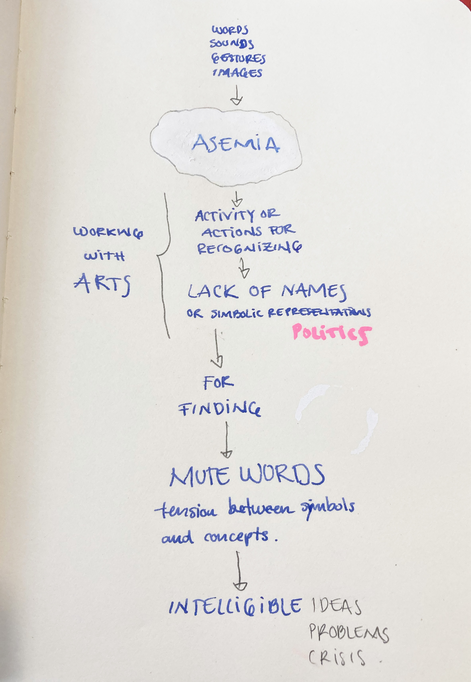 WORDS
SOUNDS
GESTURES
IMAGES
ASEMIA
ACTIVITY OR
ACTIONS FOR
RECOGNIZING
WORKING
WITH
ARTS
LACK OF NAMES
OR SIMBOLIC REPRESENTATIONS
POLITICS
FOR
FINDING
MUTE WORDS
tension between symbols
and concepts.
INTELLIGIBLE IDEAS
PROBLEMS
CRISIS.